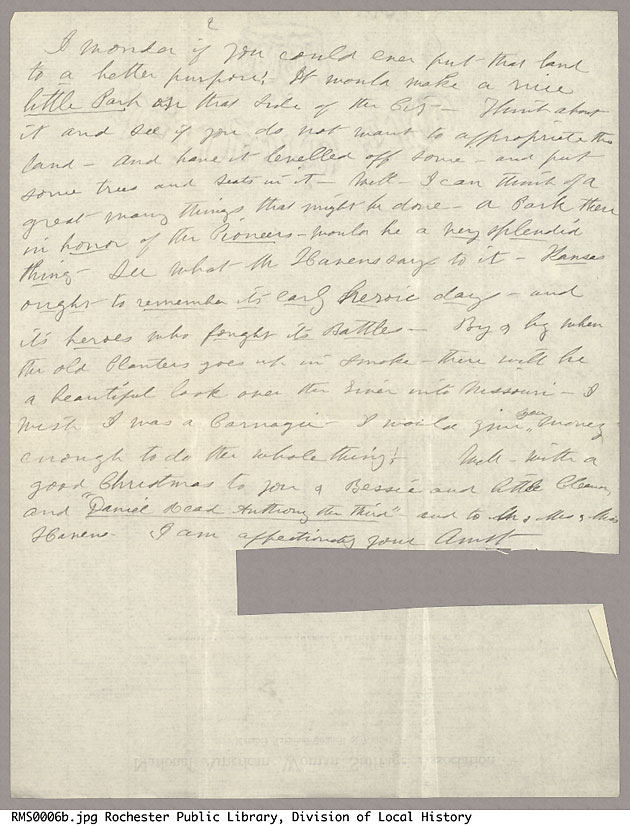 2
I wonder if you could ever put that land
to a better purpose! It would make a nice
little Park on that side of the City — Think about
it and see if you do not want to appropriate the
land — and have it levelled off some — and put
some trees and seats in it — Well — I can think of a
great many things that might be done — a Park there
in honor of the Pioneers — would be a very splendid
thing — See what Mr Havens says to it — Kansas
ought to remember its early heroic days — and
its heroes who fought its Battles — By & by when
the old Planters goes up in smoke — there will be
a beautiful look over the river into Missouri — I
wish I was a Carnagie — I would give you money
enough to do the whole thing! Well — with a
good Christmas to you & Bessie and little
and "Daniel Read Anthony the Third" and to Mr & Mrs & Miss
Havens — I am affectionately your Aunt
National American Woman Suffrage Association
RMS0006b.jpg Rochester Public Library, Division of Local History